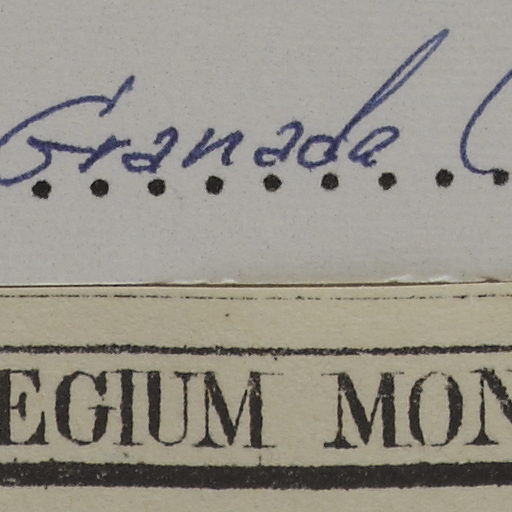 Granada
EGIUM MON